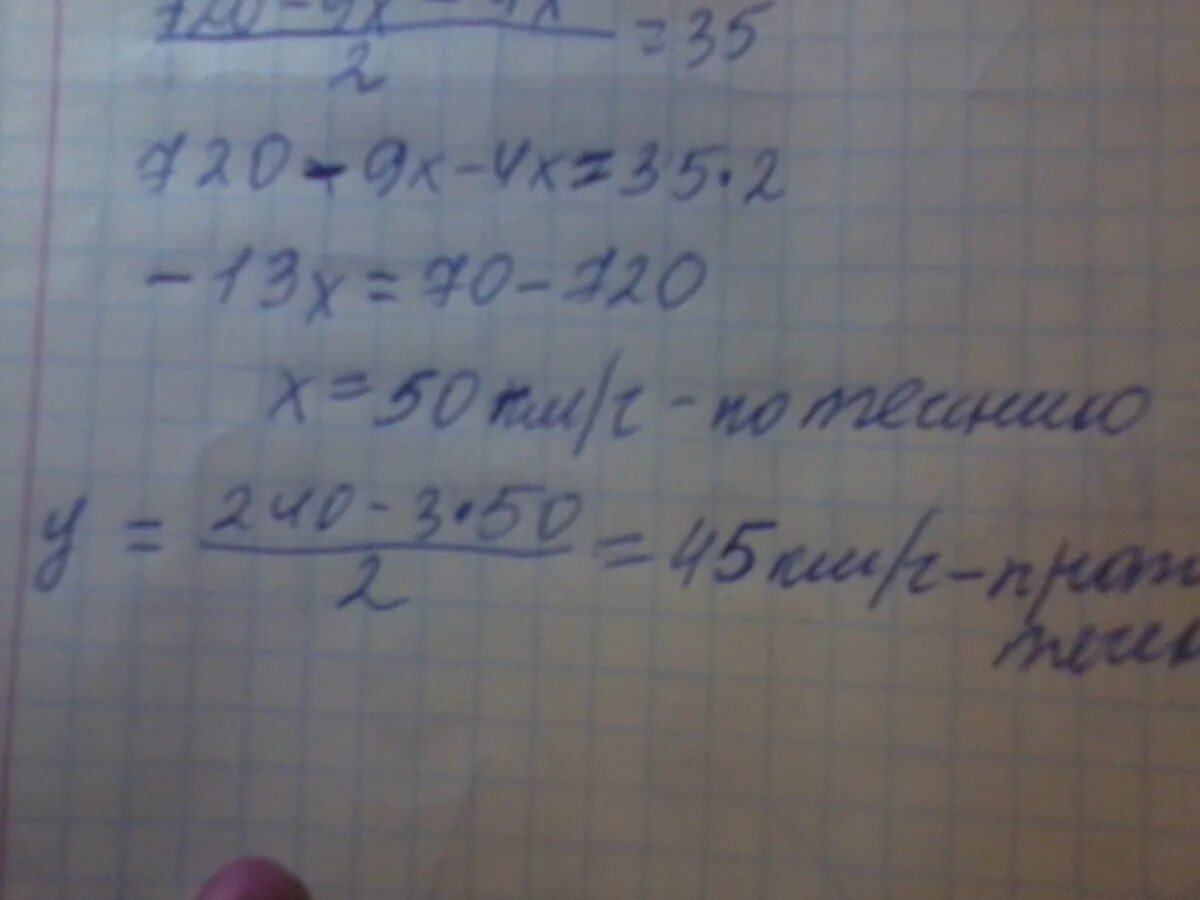 720-9x-4x
―――― = 35
2
720-9x-4x=35·2
-13x=70-720
x=50км/ч-по течению
y = (240-3·50)/2 = 45км/ч-прот
тече